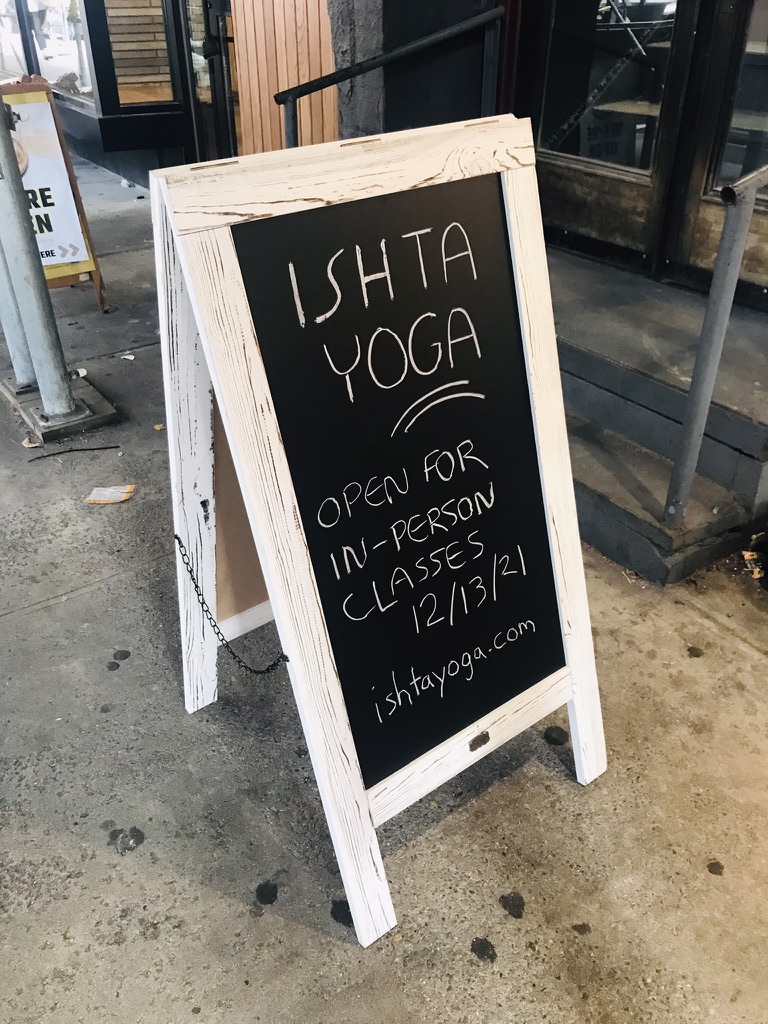 ISHTA
YOGA
OPEN FOR
IN-PERSON
CLASSES
12/13/21
ishtayoga.com